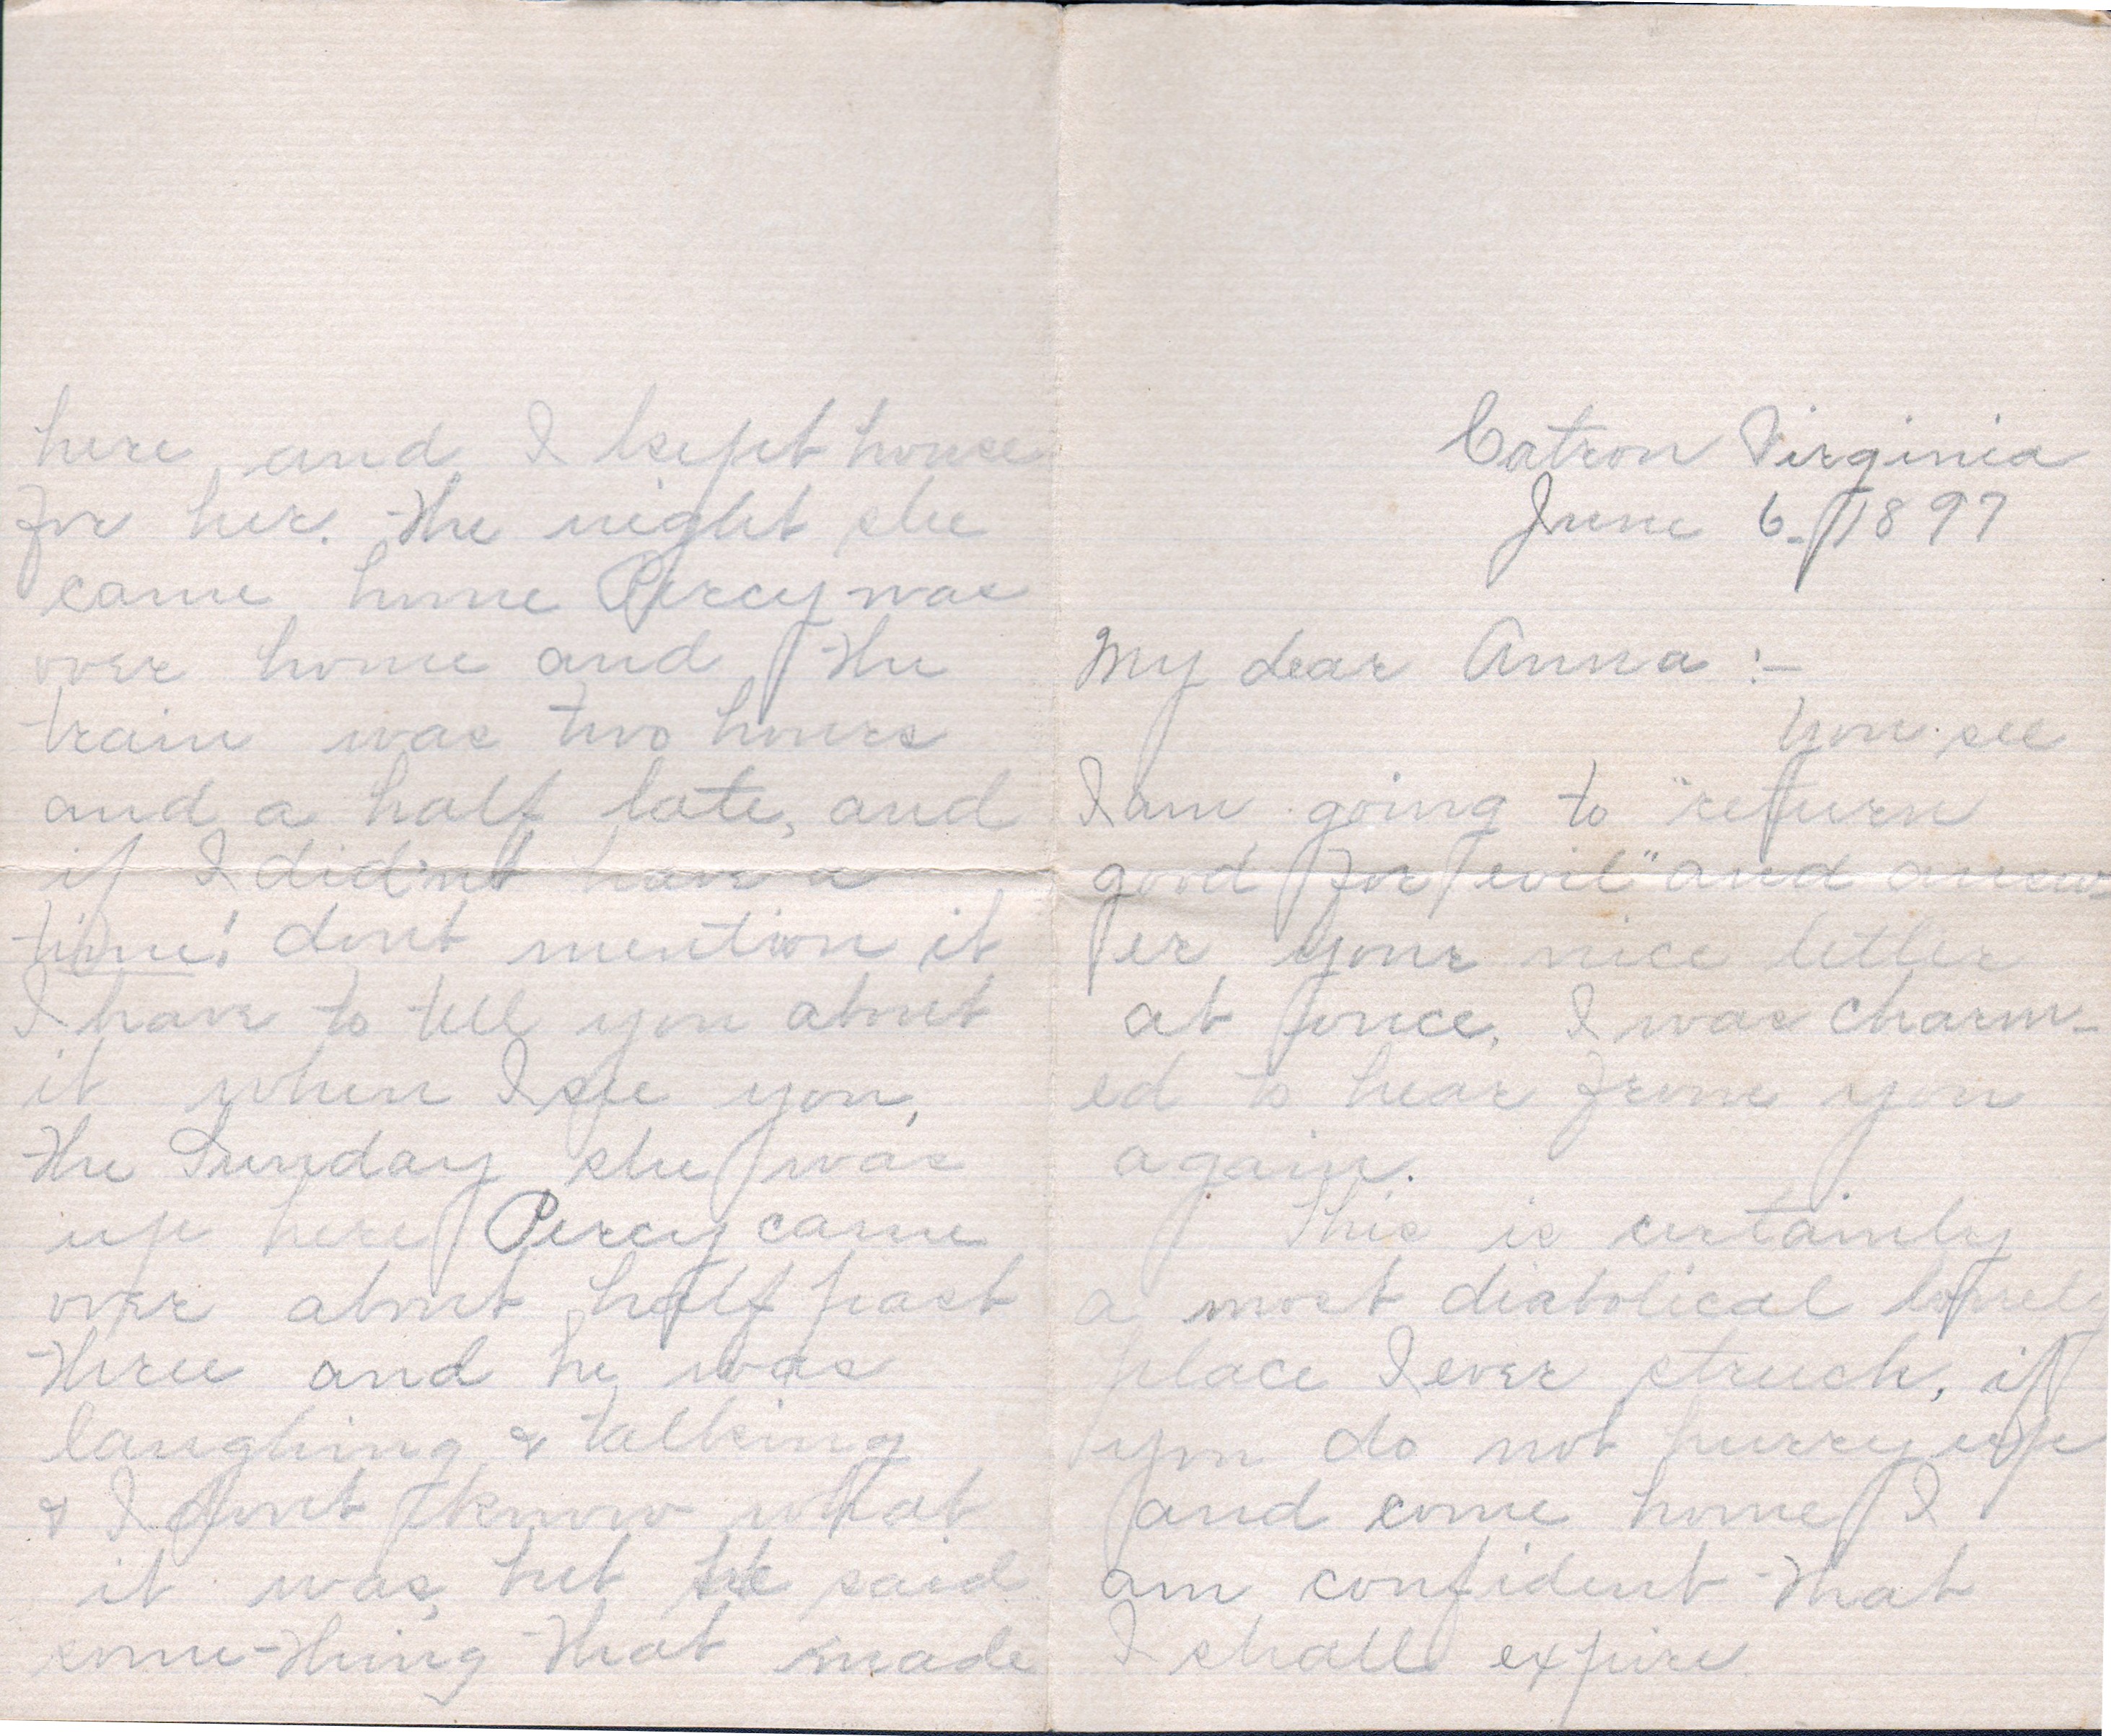 here, and I kept house
for her. The night she
came home Percy was
over home and the
train was two hours
and a half late, and
if I did'nt have a
time! dont mention it
I have to tell you about
it when I see you,
the Sunday she was
up here Percy came
over about half past
three and he was
laughing & talking
& I dont know what
it was, but he said
some-thing that made
Catron Virginia
June 6. / 1897
My dear Anna :-
You see
I am going to "return
good for evil" and answ
er your nice letter
at once. I was charm-
ed to hear from you
again.
This is certainly
a most diabolical lonely
place I ever struck, if
you do not hurry up
and come home I
am confident that
I shall expire.